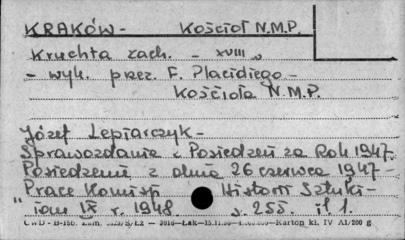 KRAKÓW - Kościoł N.M.P.
Kruchta zach. - XVIII w
- wyk. przez F. Placidiego -
Kościoła N.M.P.
Józef Lepiarczyk -
Sprawozdanie z Posiedzeń za Rok 1947.
Posiedzenie z dnia 26 czerwca 1947 -
Prace Komisji Historii Sztuki -
tom IX r. 1948 s. 255. il. 1.
Karton kl. IV A1/200 g